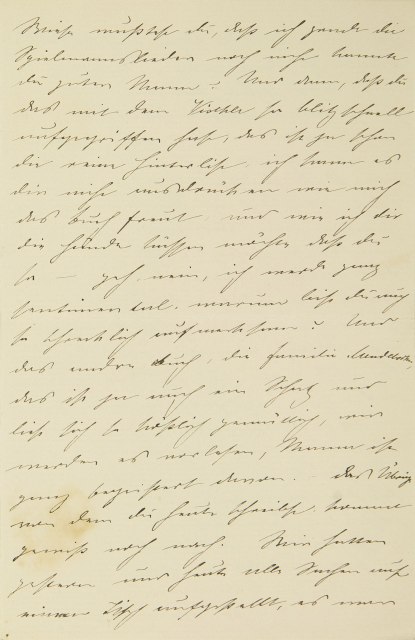 Wieso wußtest du, daß ich gerade die
Spielmannslieder noch nicht kannte
du guter Mann? Und dann, daß du
das mit dem so blitzschnell
aufgegriffen hast, das ist ja schon
die reine Hinterlist. ich kann es
dir nicht ausdrücken wie mich
das Buch freut, und wie ich dir
die Hände küssen möchte daß du
so — geh nein, ich werde ganz
sentimental. warum bist du auch
so schrecklich aufmerksam? Und
das andre Buch, die Familie
das ist ja auch ein Schatz und
liest sich so köstlich gemütlich, wir
werden es vorlesen, Mama ist
ganz begeistert davon. — Das Übrige
von dem du heute schreibst, kommt
gewiß noch nach. Wir hatten
gestern und heute alle Sachen auf
einem Tisch aufgestellt, es war